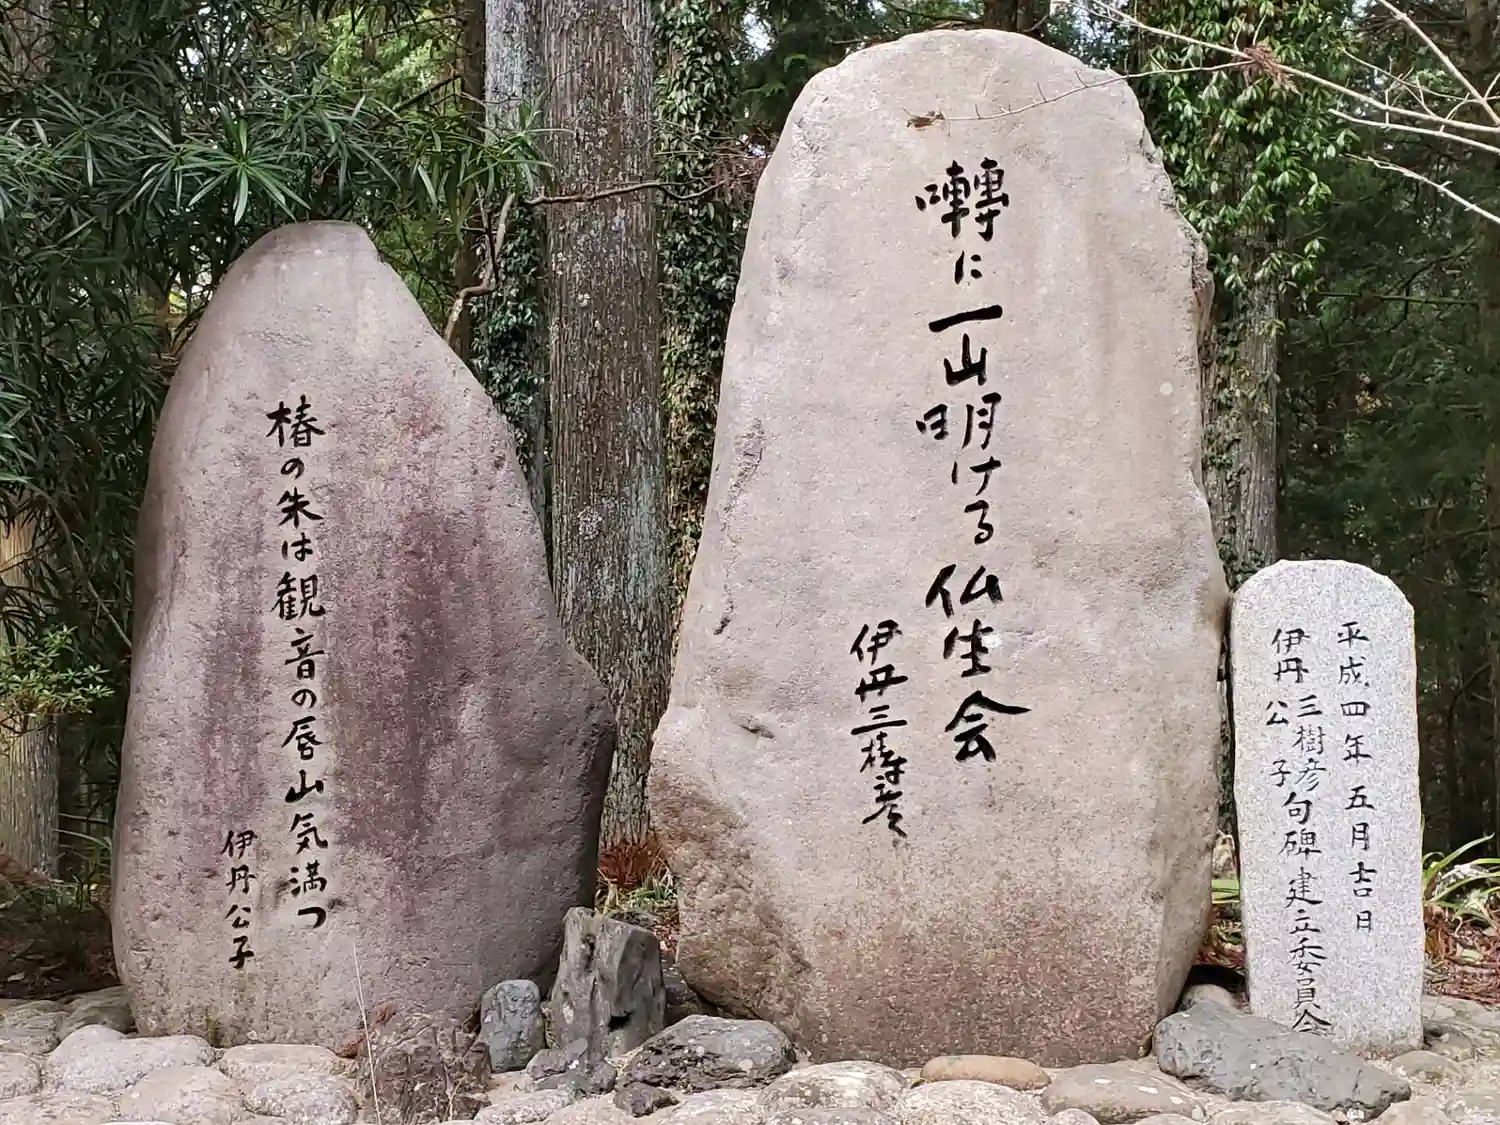 平成四年五月吉日
伊丹三樹彦公子句碑建立委員会
囀に一山明ける仏生会
伊丹三樹彦
椿の朱は観音の唇山気満つ
伊丹公子